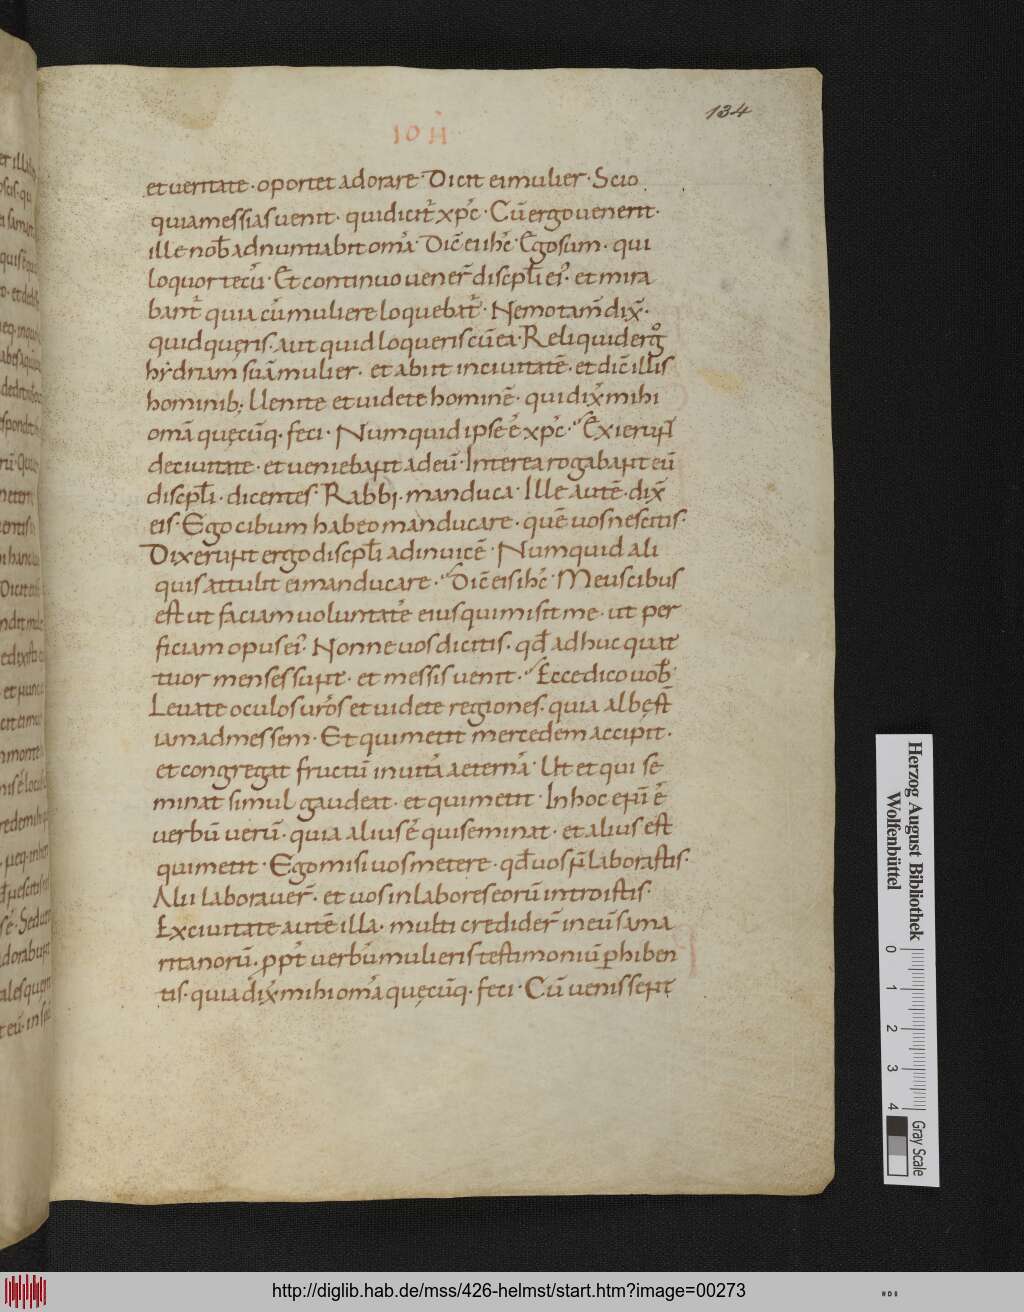 134
IOH̄
et ueritate · oportet adorare · Dicit ei mulier · Scio
quia messias uenit · qui dicit̄ xp̄c · Cū ergo uenerit ·
ille nob̄ adnuntiabit om̄a · Dic̄ ei ih̄c · Ego sum · qui
loquor tecū · Et continuo uener̄ discpl̄i ei' · et mira
bant̄ quia cū muliere loquebat̄ · Nemo tam̄ dix̄ ·
quid quęris · aut quid loqueris cū ea · Reliquid ergo
hẏdriam suā mulier · et abiit in ciuitatē · et dic̄ illis
hominib; Uenite et uidete hominē · qui dix̄ mihi
om̄a quęcūq · feci · Numquid ipse ē xp̄c · Exierun̄t
de ciuitate · et ueniebant ad eū · Interea rogabant eū
discpl̄i · dicentes · Rabbi · manduca · Ille autē · dix̄
eis · Ego cibum habeo manducare · quē uos nescitis ·
Dixerunt ergo discpl̄i adinuicē · Numquid ali
quis attulit ei manducare · Dic̄ eis ih̄c · Meus cibus
est ut faciam uoluntatē eius qui misit me · ut per
ficiam opus ei' · Nonne uos dicitis · qd̄ adhuc quat
tuor menses sunt · et messis uenit · Ecce dico uob̄
Leuate oculos ur̄os et uidete regiones · quia albę st̄
iam ad messem · Et qui metit mercedem accipit ·
et congregat fructū in uitā aeternā · Ut et qui se
minat simul gaudeat · et qui metit · In hoc enī ē
uerbū uerū · quia alius ē qui seminat · et alius est
qui metit · Ego misi uos metere · qd̄ uos n̄ laborastis ·
Alii laborauer̄ · et uos in labores eorū introistis ·
Ex ciuitate autē illa · multi credider̄ in eū sama
ritanorū · ppt̄ uerbū mulieris testimoniū phiben
tis · quia dix̄ mihi om̄a quęcūq · feci · Cū uenissent
Herzog August Bibliothek
Wolfenbüttel
0 1 2 3 4
Gray Scale
http://diglib.hab.de/mss/426-helmst/start.htm?image=00273